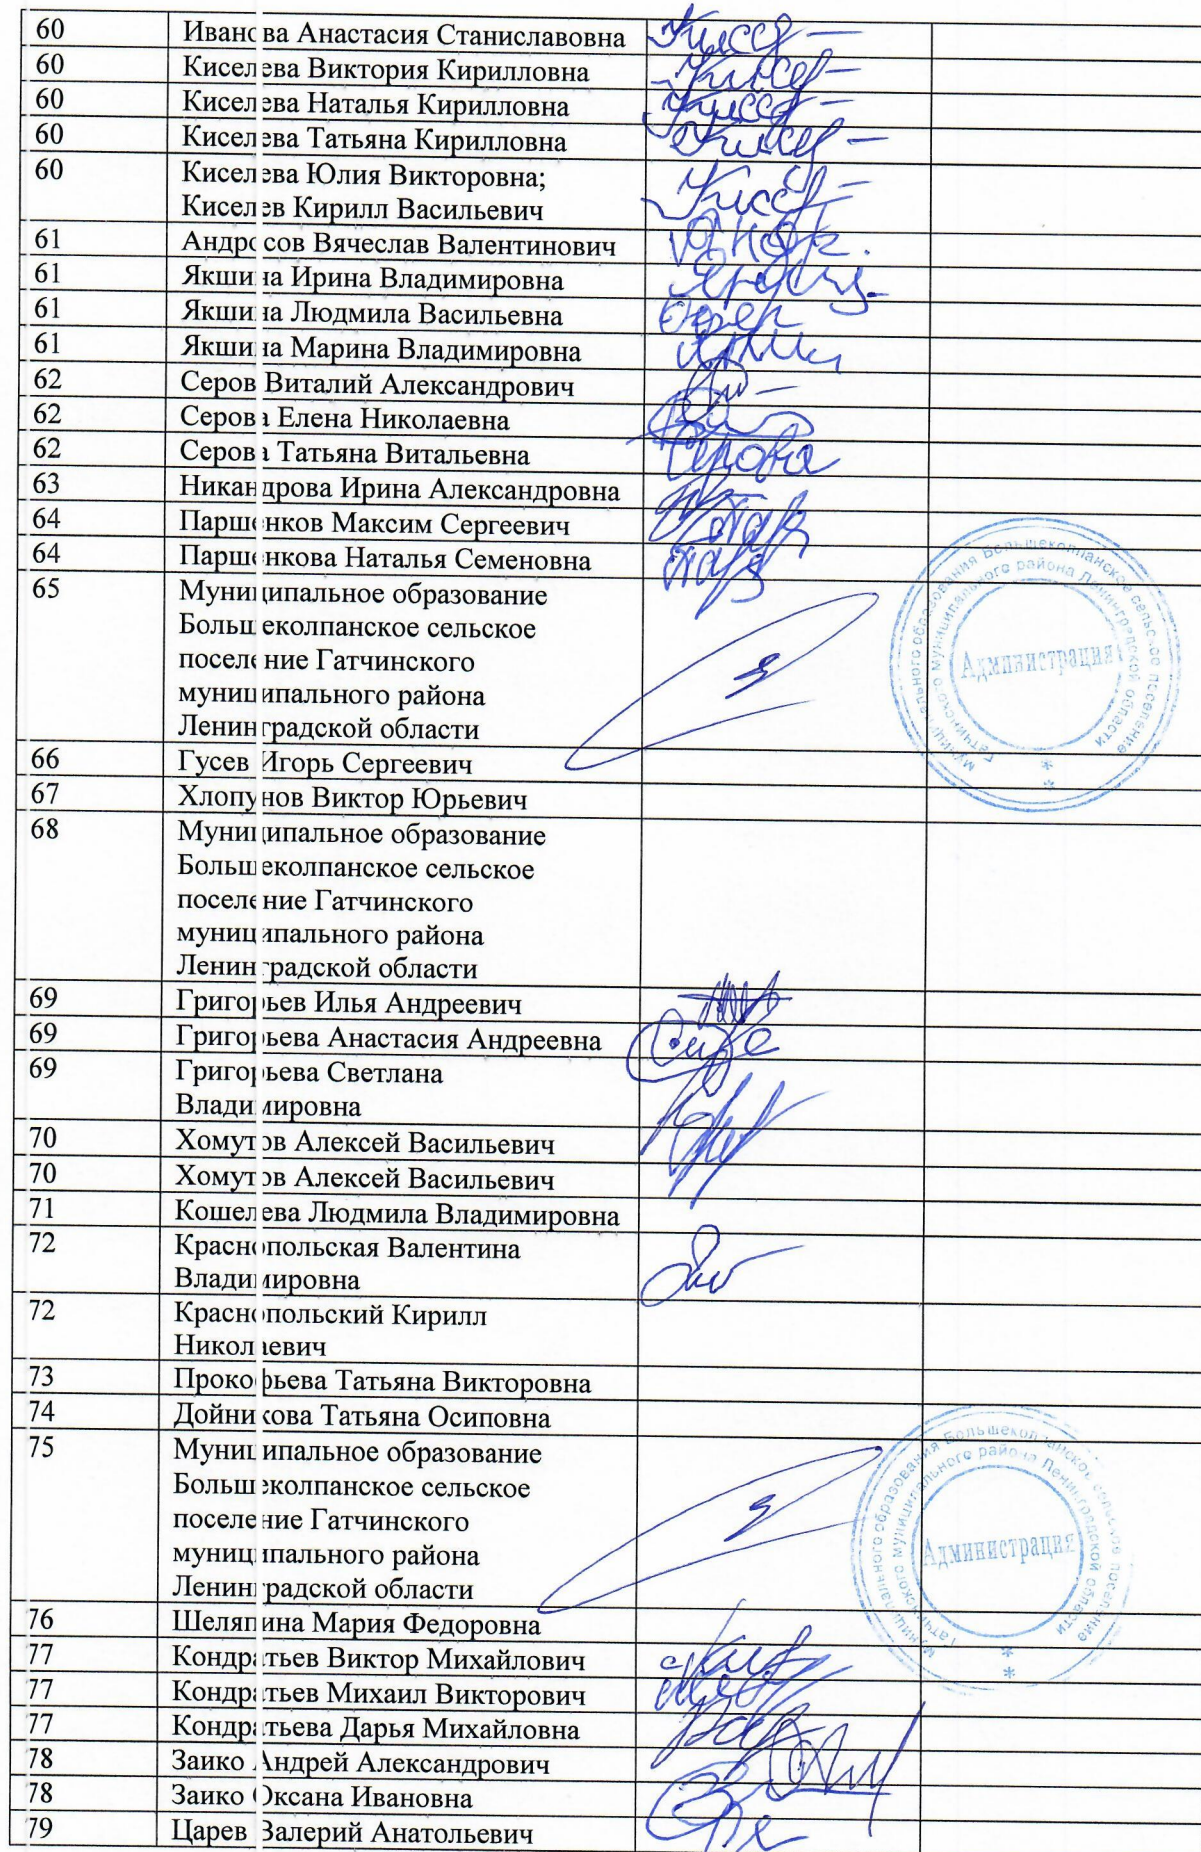 60 Иванова Анастасия Станиславовна
60 Киселева Виктория Кирилловна
60 Киселева Наталья Кирилловна
60 Киселева Татьяна Кирилловна
60 Киселева Юлия Викторовна;
Киселев Кирилл Васильевич
61 Андросов Вячеслав Валентинович
61 Якшина Ирина Владимировна
61 Якшина Людмила Васильевна
61 Якшина Марина Владимировна
62 Серов Виталий Александрович
62 Серова Елена Николаевна
62 Серова Татьяна Витальевна
Серова
63 Никандрова Ирина Александровна
64 Паршенков Максим Сергеевич
64 Паршенкова Наталья Семеновна
65 Муниципальное образование
Большеколпанское сельское
поселение Гатчинского
муниципального района
Ленинградской области
муниципального образования Большеколпанское сельское поселение
Гатчинского муниципального района Ленинградской области
Администрация
66 Гусев Игорь Сергеевич
67 Хлопунов Виктор Юрьевич
68 Муниципальное образование
Большеколпанское сельское
поселение Гатчинского
муниципального района
Ленинградской области
69 Григорьев Илья Андреевич
69 Григорьева Анастасия Андреевна
69 Григорьева Светлана
Владимировна
70 Хомутов Алексей Васильевич
70 Хомутов Алексей Васильевич
71 Кошелева Людмила Владимировна
72 Краснопольская Валентина
Владимировна
72 Краснопольский Кирилл
Николаевич
73 Прокофьева Татьяна Викторовна
74 Дойникова Татьяна Осиповна
75 Муниципальное образование
Большеколпанское сельское
поселение Гатчинского
муниципального района
Ленинградской области
муниципального образования Большеколпанское сельское поселение
Гатчинского муниципального района Ленинградской области
Администрация
76 Шеляпина Мария Федоровна
77 Кондратьев Виктор Михайлович
77 Кондратьев Михаил Викторович
77 Кондратьева Дарья Михайловна
78 Заико Андрей Александрович
78 Заико Оксана Ивановна
79 Царев Валерий Анатольевич